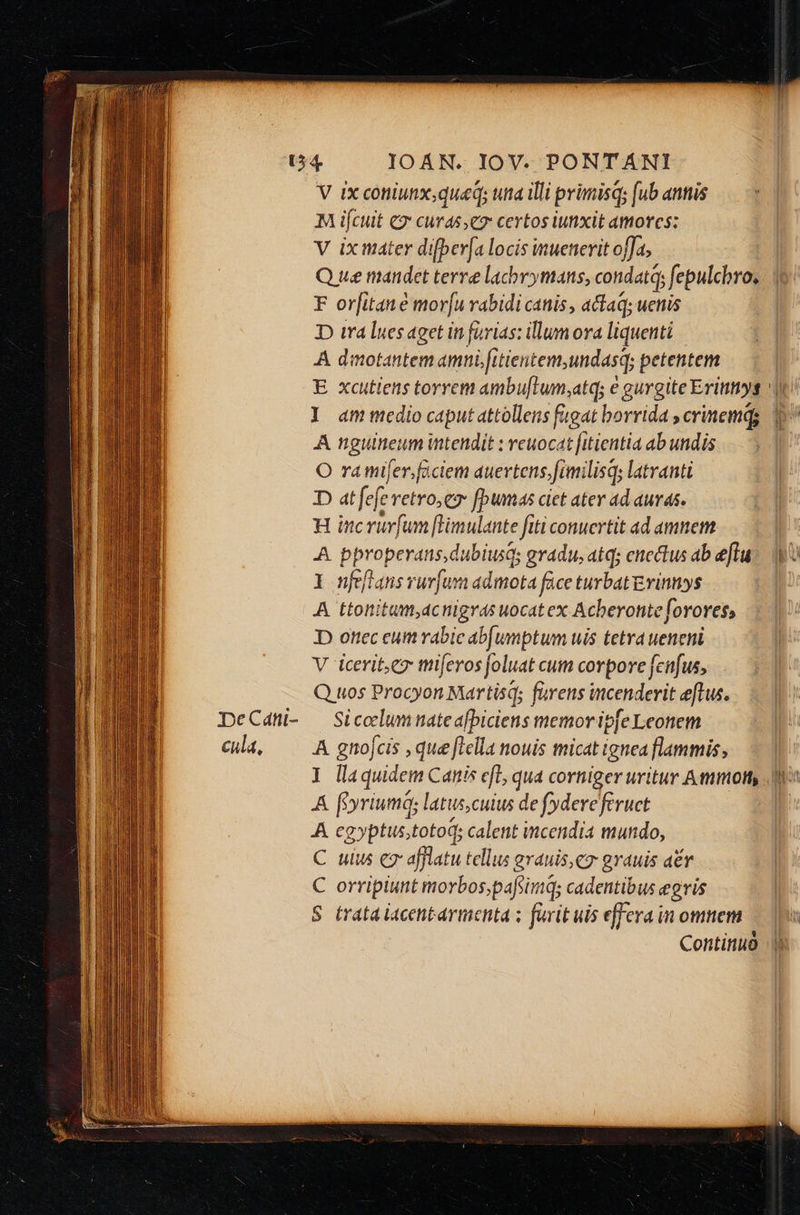 134 IOAN. IOV. PONTANI
V ix coniunx, quæq; una illi primisq; ſub annis
M iſcuit & curas, & certos iunxit amores:
V ix mater diſperſa locis inuenerit oſſa,
Q uæ mandet terræ lachrymans, condatq; ſepulchro.
F orſitan è morſu rabidi canis, actaq; uenis
D ira lues aget in furias: illum ora liquenti
A dmotantem amni, ſitientem, undasq; petentem
E xcutiens torrem ambuſtum, atq; è gurgite Erinnys
I am medio caput attollens fugat horrida, crinemq;
A nguineum intendit: reuocat ſitientia ab undis
O ra miſer, faciem auertens, ſimilisq; latranti
D at ſeſe retro, & ſpumas ciet ater ad auras.
H inc rurſum ſtimulante ſiti conuertit ad amnem
A pproperans, dubiusq; gradu, atq; enectus ab æſtu
I nfeſtans rurſum admota face turbat Erinnys
A ttonitum, ac nigras uocat ex Acheronte ſorores,
D onec eum rabie abſumptum uis tetra ueneni
V icerit, & miſeros ſoluat cum corpore ſenſus,
Q uos Procyon Martisq; furens incenderit æſtus.
De Cani- Si cœlum nate aſpiciens memor ipſe Leonem
cula, A gnoſcis, quæ ſtella nouis micat ignea flammis,
I lla quidem Canis eſt, qua corniger uritur Ammon,
A ſſyriumq; latus, cuius de ſydere feruet
A egyptus, totoq; calent incendia mundo,
C uius & afflatu tellus grauis, & grauis aër
C orripiunt morbos, paſsimq; cadentibus ægris
S trata iacent armenta; furit uis effera in omnem
Continuò